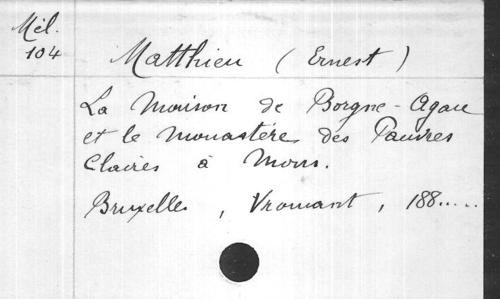 Mél.
104
Matthieu (Ernest)
La Maison de Borgne-Agau
et le Monastère des Pauvres
Claires à Mons.
Bruxelles, Vromant, 188.....